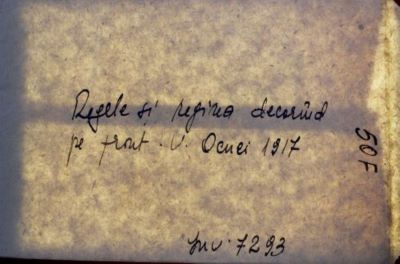 Regele si regina decorînd
pe front. V. Ocnei 1917
50F
Inv. 7293